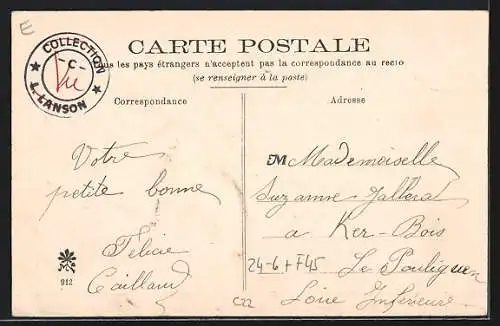 E
COLLECTION
-C-
Vu
L. LANSON
CARTE POSTALE
us les pays étrangers n'acceptent pas la correspondance au recto
(se renseigner à la poste)
Correspondance
Votre
petite bonne
Félicie
Caillaud
912
Adresse
M Mademoiselle
Suzanne
a Ker-Bois
Le Pouliguen
Loire Inferieure
24-6 + F45
C22